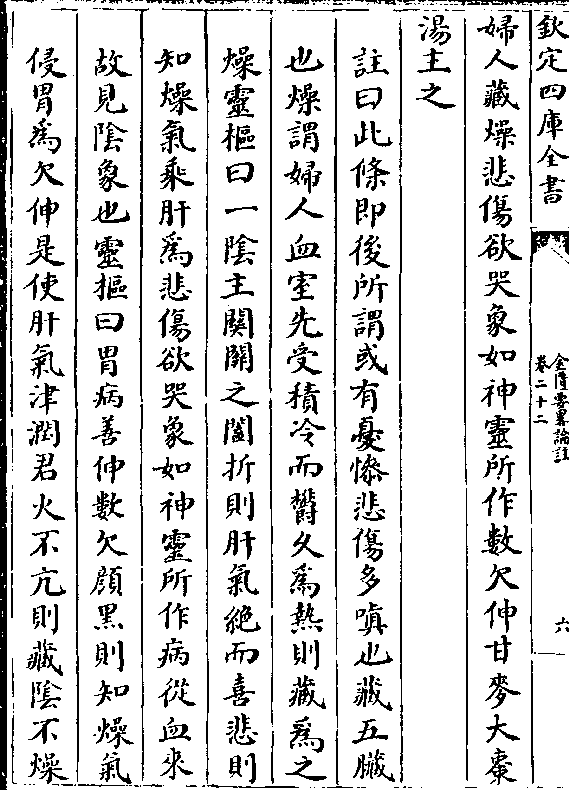 欽定四庫全書
金匱要畧論註
卷二十二
六
婦人藏燥悲傷欲哭象如神靈所作數欠伸甘麥大棗
湯主之
註曰此條即後所謂或有憂慘悲傷多嗔也藏五臓
也燥謂婦人血室先受積冷而欝久為熱則藏為之
燥靈樞曰一陰主闗闗之闔折則肝氣絶而喜悲則
知燥氣乘肝為悲傷欲哭象如神靈所作病從血來
故見陰象也靈樞曰胃病善伸數欠顔黒則知燥氣
侵胃為欠伸是使肝氣津潤君火不亢則藏陰不燥